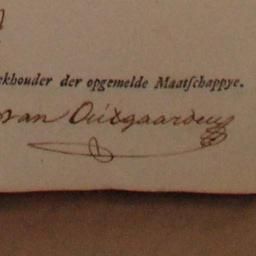 ekhouder der opgemelde Maatſchappye.
van Outgaarden